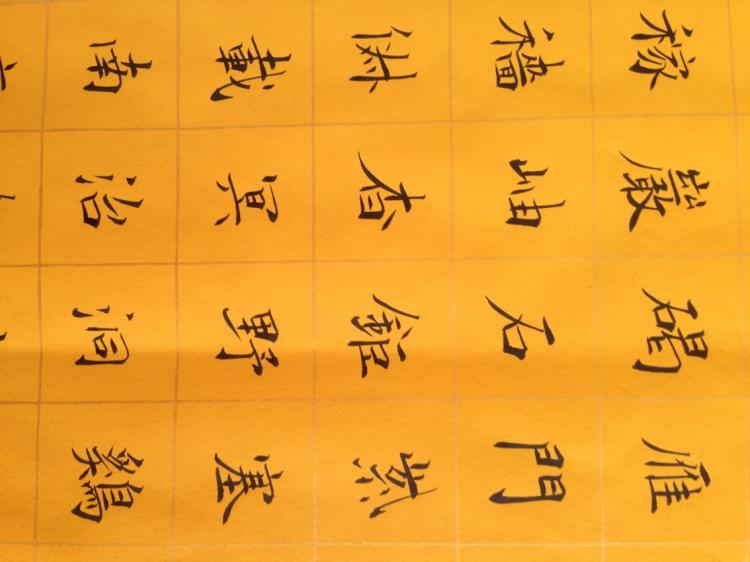 雁門紫塞鷄
碣石鉅野洞
巖岫杳冥治
稼穡俶載南